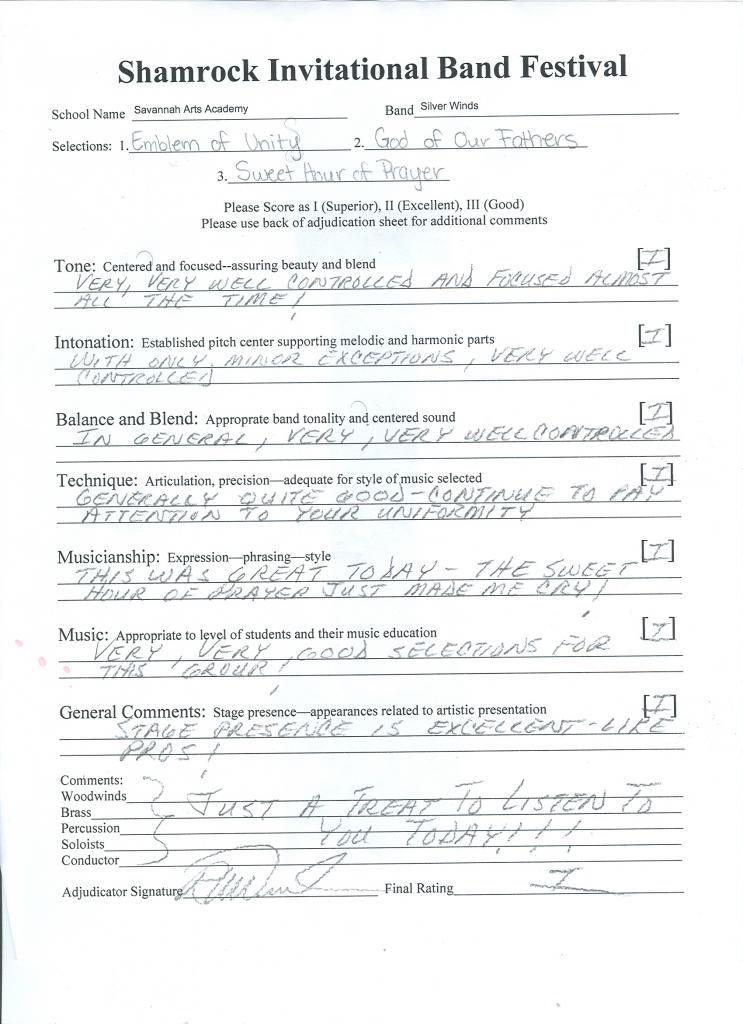 Shamrock Invitational Band Festival
School Name Savannah Arts Academy Band Silver Winds
Selections: 1. Emblem of Unity 2. God of Our Fathers
3. Sweet Hour of Prayer
Please Score as I (Superior), II (Excellent), III (Good)
Please use back of adjudication sheet for additional comments
Tone: Centered and focused--assuring beauty and blend [I]
VERY, VERY WELL CONTROLLED AND FOCUSED ALMOST
ALL THE TIME!
Intonation: Established pitch center supporting melodic and harmonic parts [I]
WITH ONLY MINOR EXCEPTIONS, VERY WELL
CONTROLLED
Balance and Blend: Approprate band tonality and centered sound [I]
IN GENERAL, VERY, VERY WELL CONTROLLED
Technique: Articulation, precision—adequate for style of music selected [I]
GENERALLY QUITE GOOD-CONTINUE TO PAY
ATTENTION TO YOUR UNIFORMITY
Musicianship: Expression—phrasing—style [I]
THIS WAS GREAT TODAY - THE SWEET
HOUR OF PRAYER JUST MADE ME CRY!
Music: Appropriate to level of students and their music education [I]
VERY, VERY GOOD SELECTIONS FOR
THIS GROUP!
General Comments: Stage presence—appearances related to artistic presentation [I]
STAGE PRESENCE IS EXCELLENT-LIKE
PROS!
Comments:
Woodwinds JUST A TREAT TO LISTEN TO
Brass
Percussion YOU TODAY!!!
Soloists
Conductor
Adjudicator Signature Final Rating I